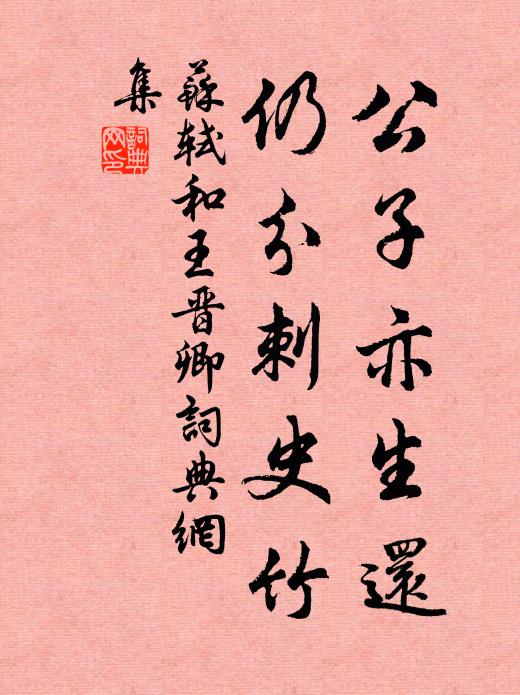 公子亦生還
仍分刺史竹
蘇軾和王晋卿詞典網
集
詞典網印